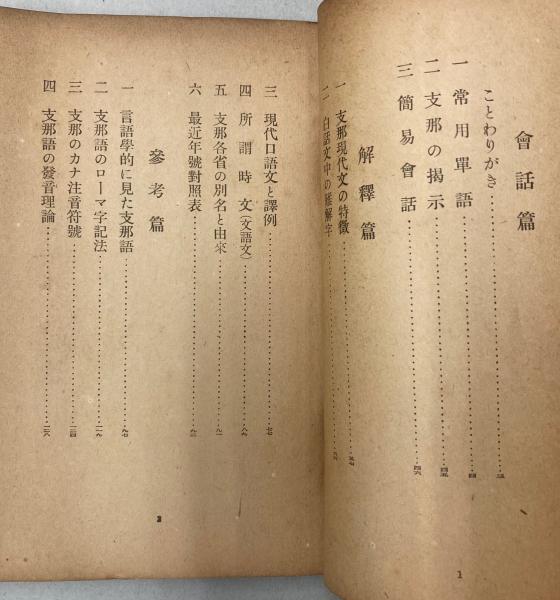 會話篇
ことわりがき
一 常用單語……四
二 支那の揭示……四五
三 簡易會話……四六
解釋篇
一 支那現代文の特徵……五七
二 白話文中の難解字
1
三 現代口語文と譯例……七七
四 所謂時文(文語文)……八六
五 支那各省の別名と由來……九一
六 最近年號對照表
參考篇
一 言語學的に見た支那語……九七
二 支那語のローマ字記法
三 支那のカナ注音符號
四 支那語の發音理論
2